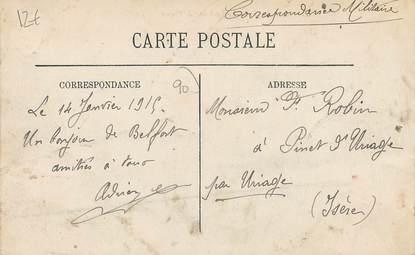 12€
Correspondance Militaire
CARTE POSTALE
CORRESPONDANCE
90
ADRESSE
Le 14 Janvier 1915.
Un bonjour de Belfort
amitiés à tous
Adrien
Monsieur F. Robin
à Pinet d'Uriage
par Uriage
(Isère)